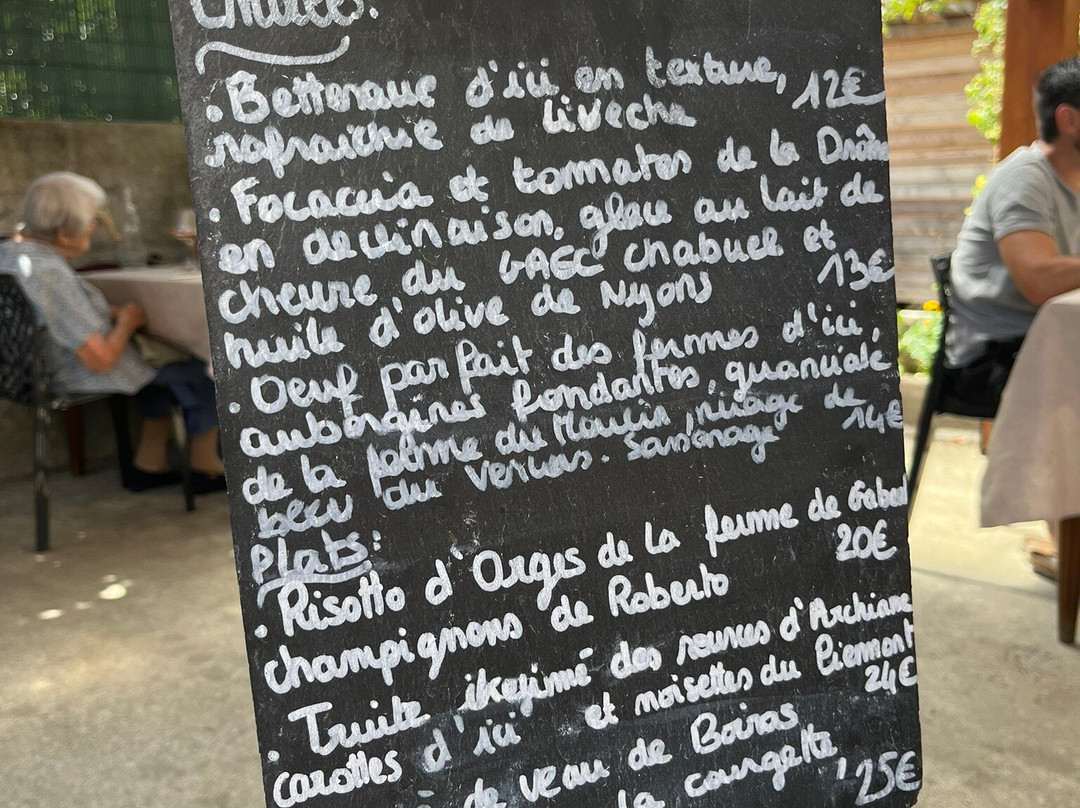 Entrées:
• Betterave d'ici en texture, 12€
rafraîchie de livèche
• Focaccia et tomates de la Drôme
en déclinaison, glace au lait de
chèvre du GAEC Chabuel et
huile d'olive de Nyons 13€
• Oeuf parfait des fermes d'ici,
aubergines fondantes, guanciale
de la ferme du Moulin, nuage de
bleu du Vercors. Sassenage 14€
Plats:
• Risotto d'Orges de la ferme de Gabert
champignons de Roberto 20€
• Truite ikejimé des sources d'Archiane
carottes d'ici et noisettes du Piemont
24€
de veau de Boiras
la courgette, 25€